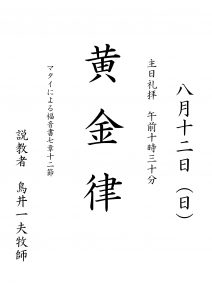 八月十二日（日）
主日礼拝　午前十時三十分
黄金律
マタイによる福音書七章十二節
説教者　鳥井一夫牧師